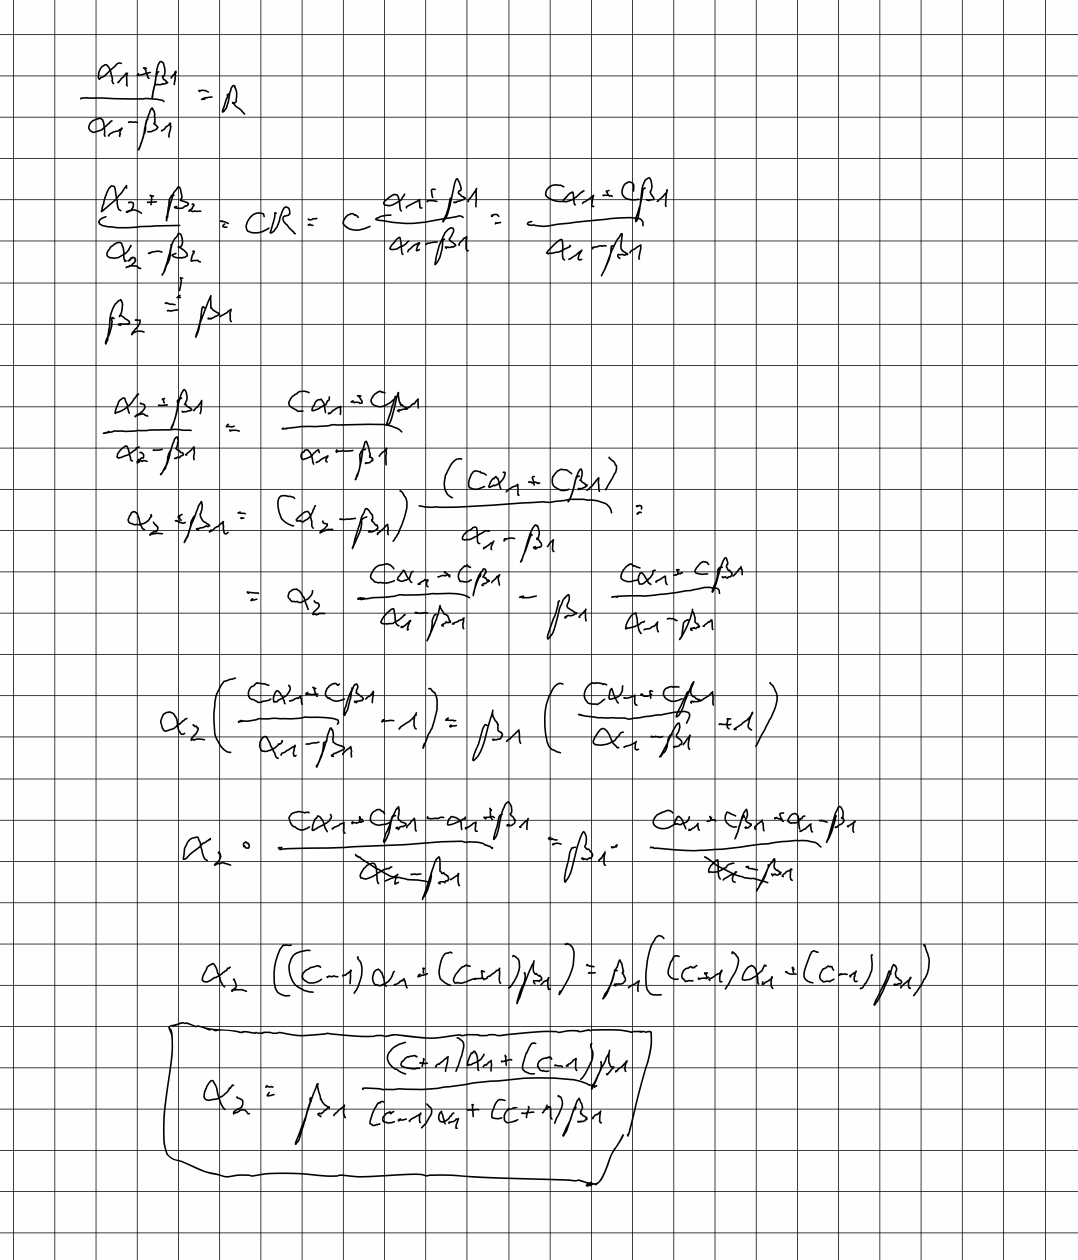 (α₁+β₁)/(α₁-β₁) = R
(α₂+β₂)/(α₂-β₂) = CR = C (α₁+β₁)/(α₁-β₁) = (Cα₁+Cβ₁)/(α₁-β₁)
β₂ =! β₁
(α₂+β₁)/(α₂-β₁) = (Cα₁+Cβ₁)/(α₁-β₁)
α₂+β₁ = (α₂-β₁) (Cα₁+Cβ₁)/(α₁-β₁) =
= α₂ (Cα₁+Cβ₁)/(α₁-β₁) - β₁ (Cα₁+Cβ₁)/(α₁-β₁)
α₂((Cα₁+Cβ₁)/(α₁-β₁) -1) = β₁((Cα₁+Cβ₁)/(α₁-β₁) +1)
α₂ · (Cα₁+Cβ₁-α₁+β₁)/(α₁-β₁) = β₁ · (Cα₁+Cβ₁+α₁-β₁)/(α₁-β₁)
α₂ ((C-1)α₁+(C+1)β₁) = β₁((C+1)α₁+(C-1)β₁)
α₂ = β₁ ((C+1)α₁+(C-1)β₁)/((C-1)α₁+(C+1)β₁)